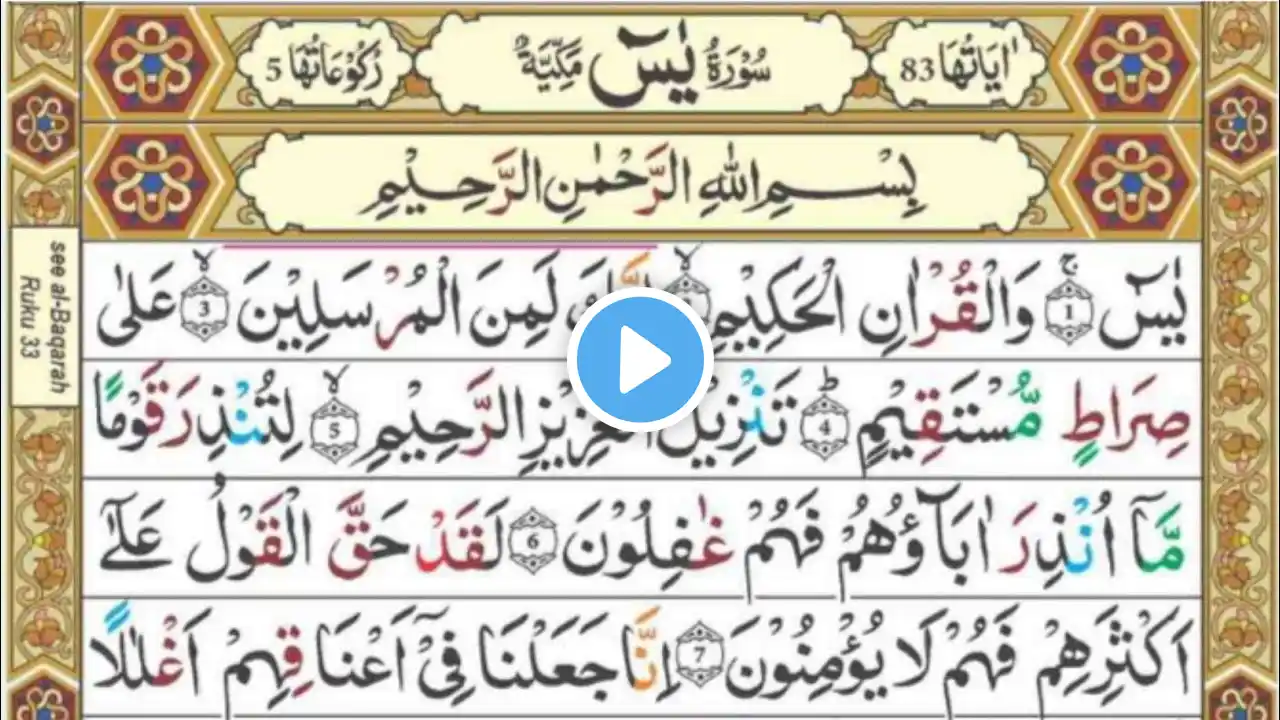 اٰيَاتُهَا 83 سُوْرَةُ يٰسٓ مَكِّيَّةٌ رُكُوْعَاتُهَا 5
بِسْمِ اللّٰهِ الرَّحْمٰنِ الرَّحِيْمِ
يٰسٓ ۚ 1 وَالْقُرْاٰنِ الْحَكِيْمِ ۙ لَمِنَ الْمُرْسَلِيْنَ ۙ 3 عَلٰى
صِرَاطٍ مُّسْتَقِيْمٍ ؕ 4 تَنْزِيْلَ الْعَزِيْزِ الرَّحِيْمِ ۙ 5 لِتُنْذِرَ قَوْمًا
مَّآ اُنْذِرَ اٰبَآؤُهُمْ فَهُمْ غٰفِلُوْنَ 6 لَقَدْ حَقَّ الْقَوْلُ عَلٰٓى
اَكْثَرِهِمْ فَهُمْ لَا يُؤْمِنُوْنَ 7 اِنَّا جَعَلْنَا فِيْٓ اَعْنَاقِهِمْ اَغْلٰلًا
see al-Baqarah
Ruku 33